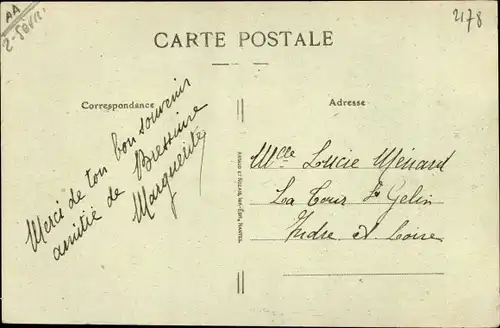 AA
2-Sèvr.
2178
CARTE POSTALE
Correspondance
Adresse
Merci de ton bon souvenir
amitié de Bressuire
Marguerite
ARNAUD ET NOZAIS, IMP.-ÉDIT., NANTES
Mlle Lucie Ménard
La Tour St Gelin
Indre et Loire